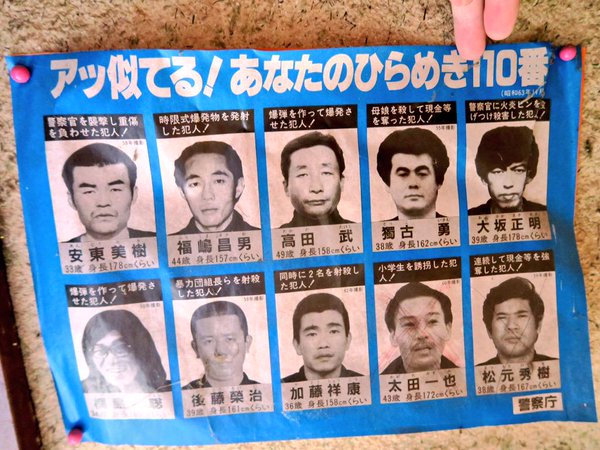 アッ似てる!あなたのひらめき110番
(昭和63年11月)
警察官を襲撃し重傷
を負わせた犯人!
時限式爆発物を発射
した犯人!
爆弾を作って爆発さ
せた犯人!
母娘を殺して現金等
を奪った犯人!
警察官に火炎ビンを投
げつけ殺害した犯人!
安東美樹
33歳 身長178cmくらい
福嶋昌男
44歳 身長157cmくらい
高田 武
49歳 身長158cmくらい
獨古 勇
38歳 身長162cmくらい
大坂正明
39歳 身長178cmくらい
爆弾を作って爆発さ
せた犯人!
暴力団組長らを射殺
した犯人!
同時に2名を射殺し
た犯人!
小学生を誘拐した犯
人!
連続して現金等を強
奪した犯人!
聡
後藤榮治
39歳 身長161cmくらい
加藤祥康
36歳 身長158cmくらい
太田一也
43歳 身長172cmくらい
松元秀樹
38歳 身長167cmくらい
警察庁